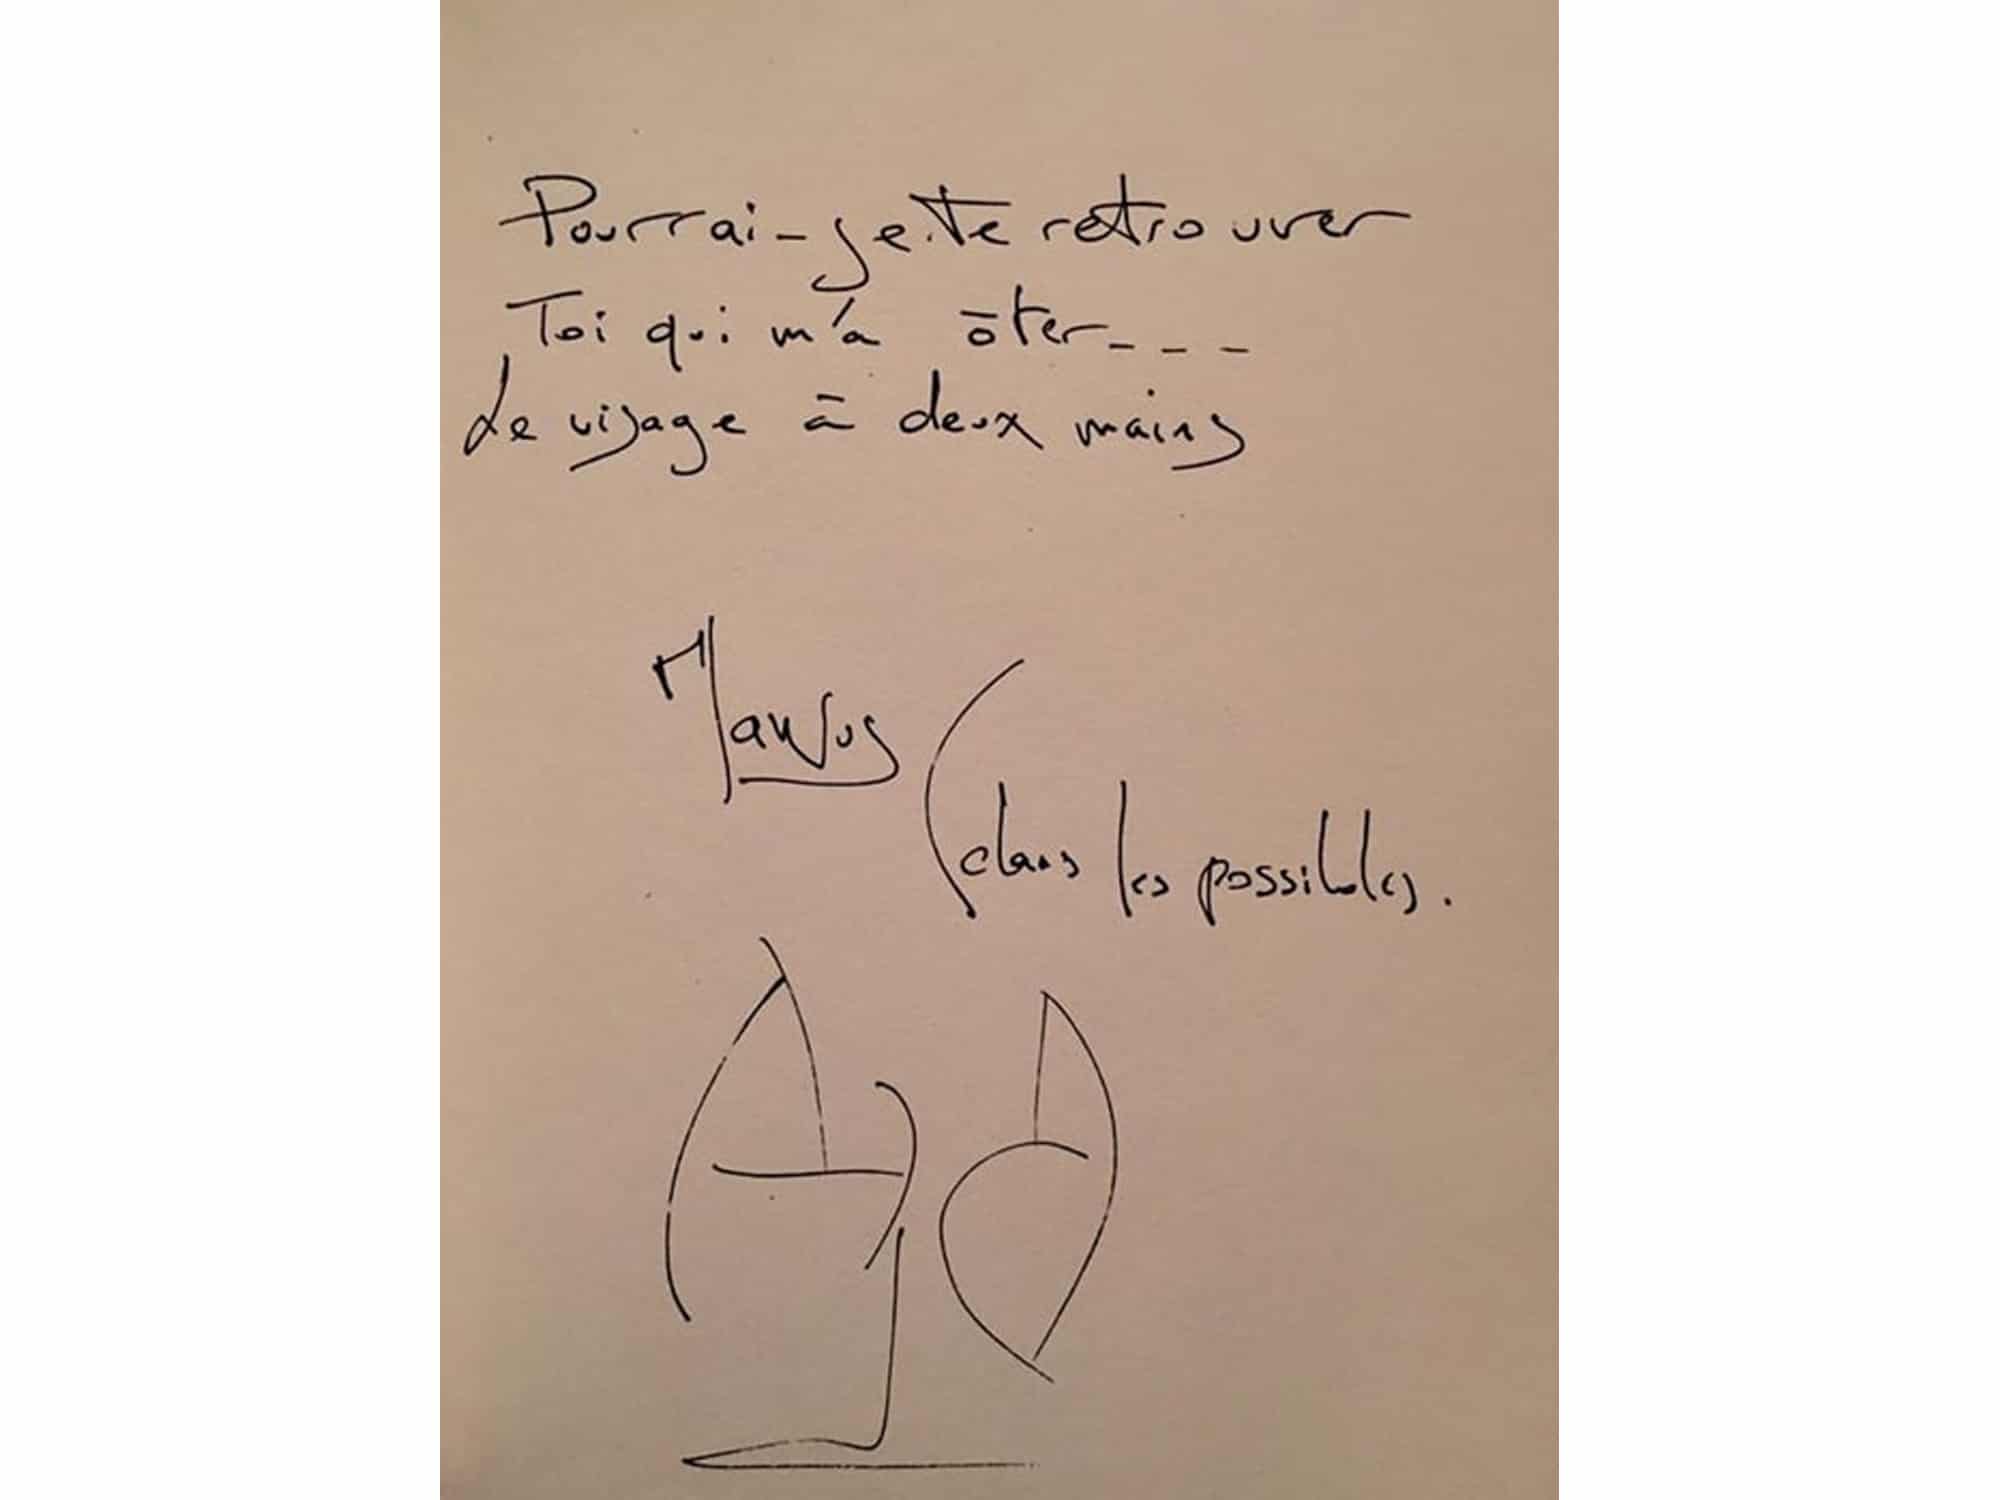 Pourrai-je te retrouver
Toi qui m'a ōter---
Le visage ā deux mains
dans les possibles.